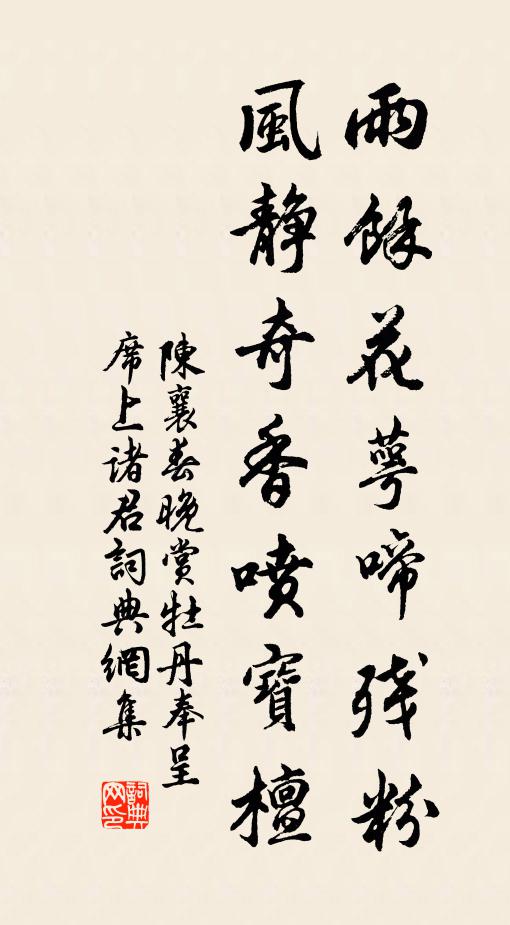 雨餘花萼啼残粉
風静奇香噴寶檀
陳襄春晚賞牡丹奉呈
席上诸君詞典網集
詞典网印